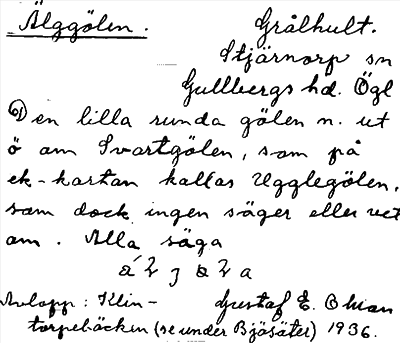 Älggölen. Grålhult.
Stjärnorp sn
Gullbergs hd. Ögl
en lilla runda gölen n. ut
ö om Svartgölen, som på
ek-kartan kallas Ugglegölen,
som dock ingen säger eller vet
om. Alla säga
Avlopp: Klin- Gustaf E. Ohlan
torpebäcken (se under Bjösäter) 1936.